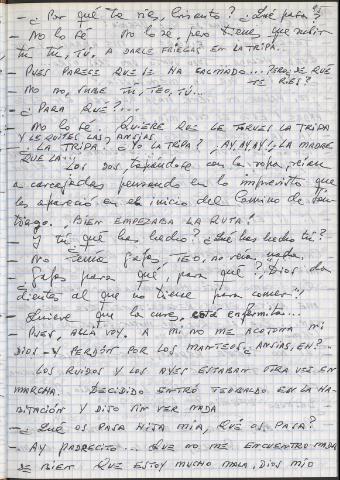 - ¿Por qué te ríes, Crisanto? ¿Qué pasa?
- No lo sé No lo sé, pero tiene que subir
tú, tú, TÚ. A DARLE FRIEGAS EN LA TRIPA...
- PUES PARECE QUE SE HA CALMADO... PERO, DE QUÉ
TE RÍES?
- NO NO, SUBE TU, TEO, TÚ...
- ¿PARA QUÉ?...
- NO LO SÉ, QUIERE QUE LE TOQUES LA TRIPA
Y LE QUITES LAS ANSIAS
- ¿LA TRIPA? ¿YO LA TRIPA? ¡AY, AY, AY!, LA MADRE
QUE LA...
LOS DOS, tapándose con la ropa, reían
a carcajadas pensando en lo imprevisto que
les apareció en el inicio del Camino de San-
tiago. ¡BIEN EMPEZABA LA RUTA!
- Y tú ¿qué has hecho? ¿Qué has hecho tú?
- No tenía gafas, TEO, no veía nada.
Gafas para qué, para qué? ¡Dios da
dientes al que no tiene para comer!
- Quiere que la cure, está enfermita...
- PUES, ALLÁ VOY. A MÍ NO ME ACOTONA NI
DIOS - Y PERDÓN POR LOS MANTEOS ¿ANSIAS, EH?..
LOS RUIDOS Y LOS AYES ESTABAN OTRA VEZ EN
MARCHA. DECIDIDO ENTRÓ TEOBALDO EN LA HA-
BITACIÓN Y DIJO SIN VER NADA
- ¿QUÉ OS PASA HIJA MÍA, QUÉ OS PASA?
- AY PADRECITO... QUE NO ME ENCUENTRO NADA
DE BIEN QUE ESTOY MUCHO MALA, DIOS MÍO